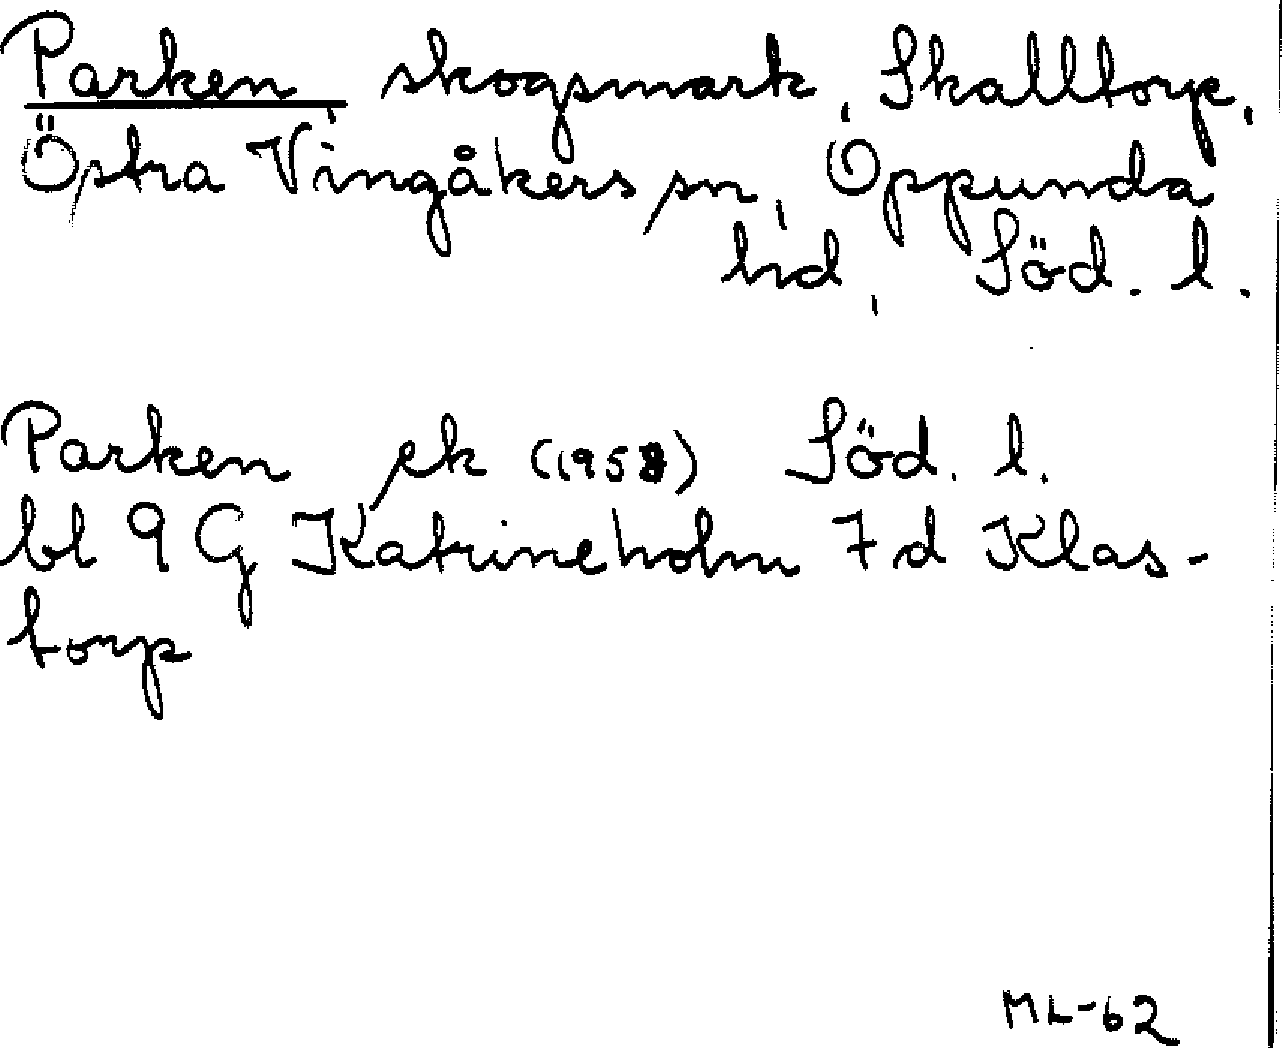 Parken, skogsmark, Skalltorp,
Östra Vingåkers sn, Oppunda
hd, Söd. l.
Parken ek (1958) Söd. l.
bl 9 G Katrineholm 7 d Klas-
torp
ML-62